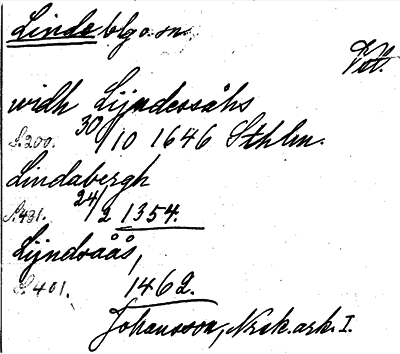 Linde blgo. sn.
Vät.
widh Lijndessåhs
S. 200. 30/10 1646 Sthlm.
Lindabergh
S. 431. 24/2 1354.
Lijndsåås,
S. 401. 1462.
Johansson, Norsk. ark. I.